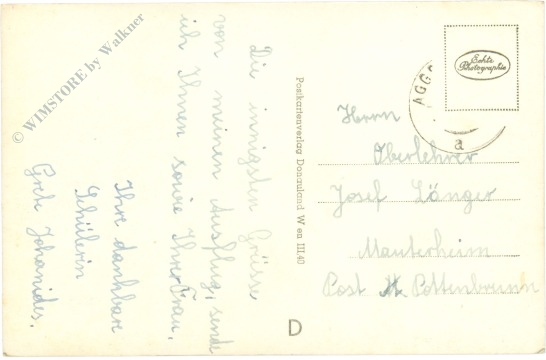 © WIMSTORE by Walkner
Die innigsten Grüsse
von meinen Ausflug, sende
ich Ihnen sowie Ihrer Frau,
Ihre dankbare
Schülerin
Grete Johanides.
Postkartenverlag Donauland Wien III,40
AGGS
a
Echte
Photographie
Herrn
Oberlehrer
Josef Länger
Mauterheim
Post Pottenbrunn
D